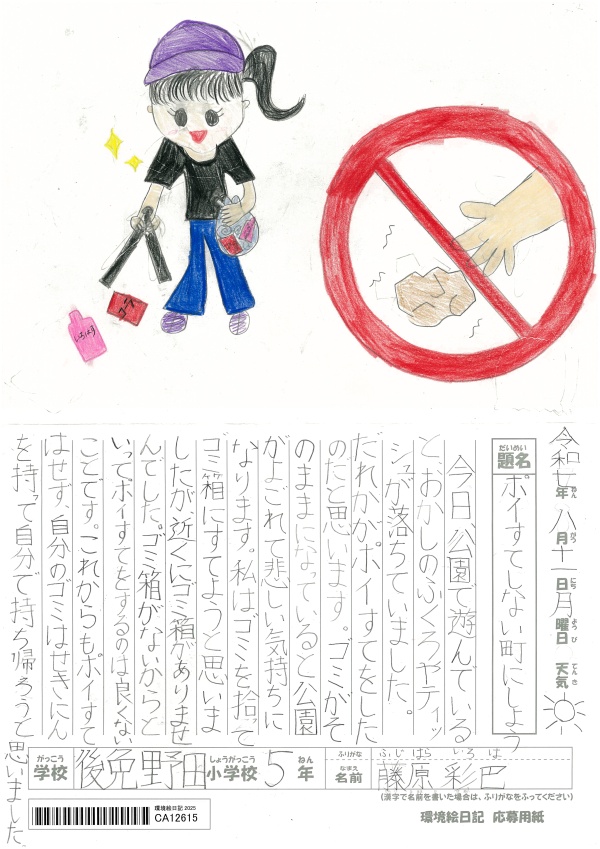 いろはす
令和七年八月十一日月曜日 天気
ねん
がつ
にち
ようび
てんき
だいめい
題名 ポイすてしない町にしよう
今日、公園で遊んでいる
と、おかしのふくろやティッ
シュが落ちていました。
だれかがポイすてをした
のだと思います。ゴミがそ
のままになっていると公園
がよごれて悲しい気持ちに
なります。私はゴミを拾って
ゴミ箱にすてようと思いま
したが、近くにゴミ箱がありませ
んでした。ゴミ箱がないからと
いってポイすてをするのは良くない
ことです。これからもポイすて
はせず、自分のゴミはせきにん
を持って自分で持ち帰ろうと思いました。
がっこう しょうがっこう ねん
学校 後免野田小学校 5年
ふりがな ふじ はら いろ は
なまえ
名前 藤原 彩巴
(漢字で名前を書いた場合は、ふりがなをふってください)
環境絵日記 2025
CA12615
環境絵日記 応募用紙